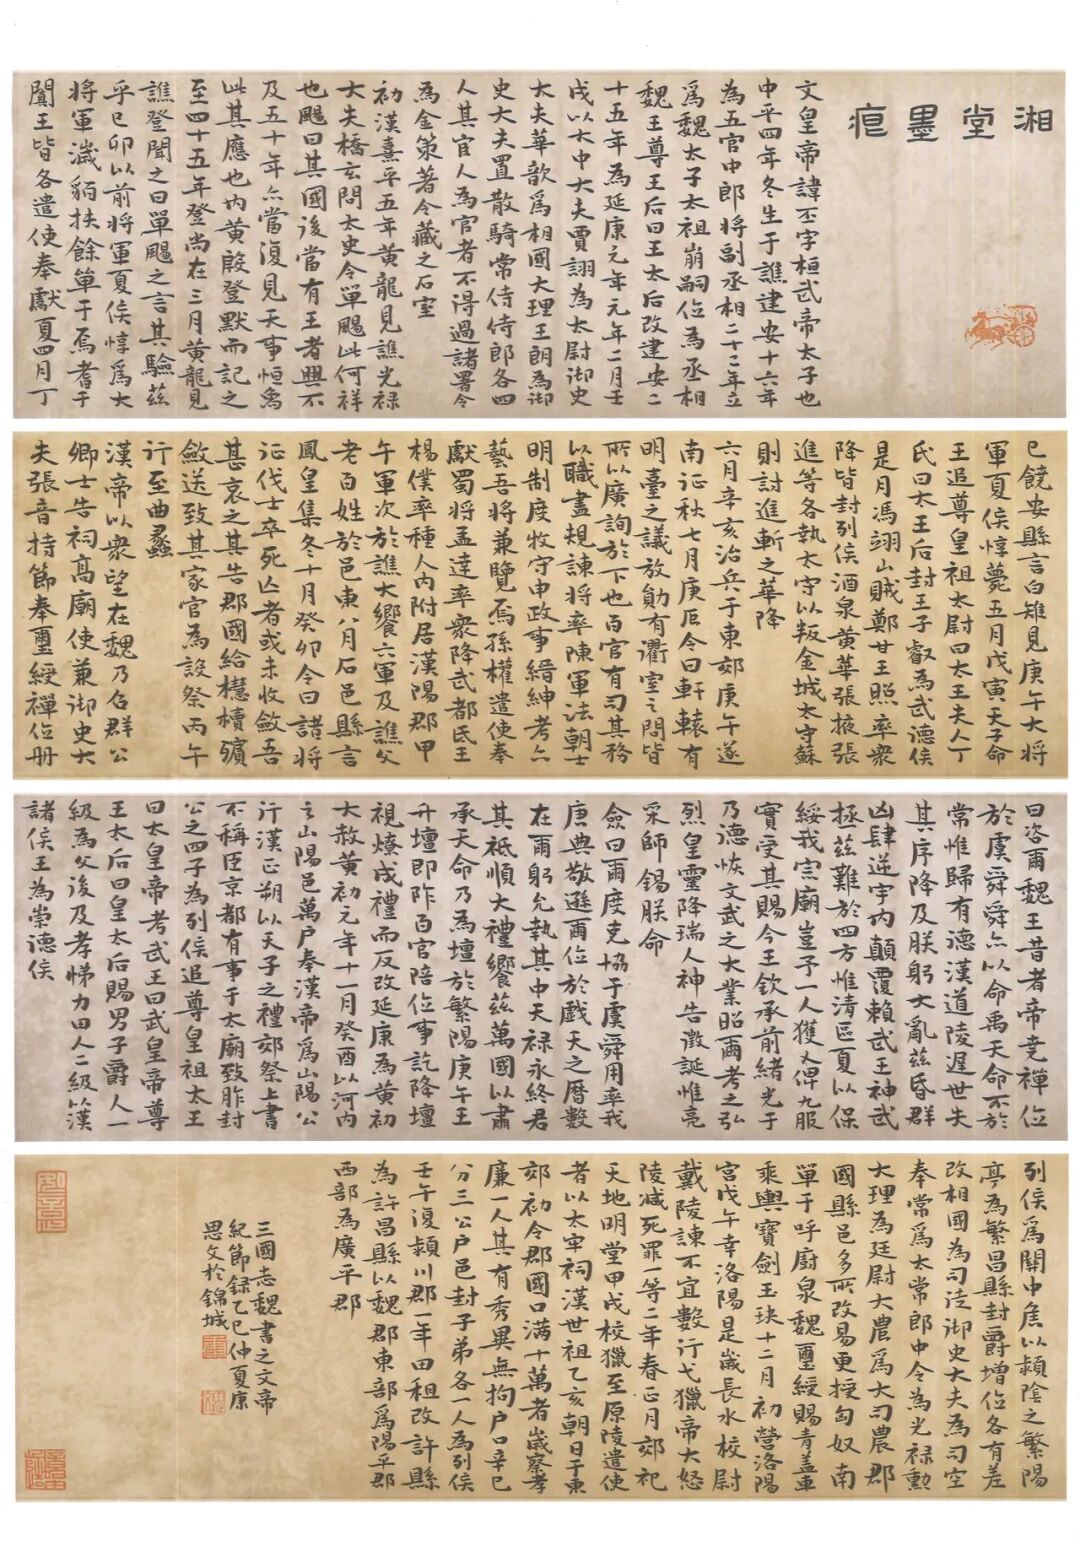 湘堂墨痕
文皇帝諱丕字桓武帝太子也
中平四年冬生于譙建安十六年
為五官中郎將副丞相二十二年立
為魏太子太祖崩嗣位為丞相
魏王尊王后曰王太后改建安二
十五年為延康元年元年二月壬
戌以太中大夫賈詡為太尉御史
大夫華歆為相國大理王朗為御
史大夫置散騎常侍侍郎各四
人其宦人為官者不得過諸署令
為金策著令藏之石室
初漢熹平五年黃龍見譙光祿
大夫橋玄問太史令單颺此何祥
也颺曰其國後當有王者興不
及五十年亦當復見天事恒象
此其應也內黃殷登默而記之
至四十五年登尚在三月黃龍見
譙登聞之曰單颺之言其驗茲
乎已卯以前將軍夏侯惇為大
將軍濊貊扶餘單于焉耆于
闐王皆各遣使奉獻夏四月丁
巳饒安縣言白雉見庚午大將
軍夏侯惇薨五月戊寅天子命
王追尊皇祖太尉曰太王夫人丁
氏曰太王后封王子叡為武德侯
是月馮翊山賊鄭世王照率衆
降皆封列侯酒泉黃華張掖張
進等各執太守以叛金城太守蘇
則討進斬之華降
六月辛亥治兵于東郊庚午遂
南征秋七月庚辰令曰軒轅有
明臺之議放勛有衢室之問皆
所以廣詢於下也百官有司其務
以職盡規諫將率陳軍法朝士
明制度牧守申政事縉紳考六
藝吾將兼覽焉孫權遣使奉
獻蜀將孟達率衆降武都氐王
楊僕率種人內附居漢陽郡甲
午軍次於譙大饗六軍及譙父
老百姓於邑東八月石邑縣言
鳳皇集冬十月癸卯令曰諸將
征伐士卒死亡者或未收斂吾
甚哀之其告郡國給槥櫝殯
斂送致其家官為設祭丙午
行至曲蠡
漢帝以衆望在魏乃召群公
卿士告祠高廟使兼御史大
夫張音持節奉璽綬禪位冊
曰咨爾魏王昔者帝堯禪位
於虞舜舜亦以命禹天命不於
常惟歸有德漢道陵遲世失
其序降及朕躬大亂茲昏群
凶肆逆宇內顛覆賴武王神武
拯茲難於四方惟清區夏以保
綏我宗廟豈予一人獲乂俾九服
實受其賜今王欽承前緒光于
乃德恢文武之大業昭爾考之弘
烈皇靈降瑞人神告徵誕惟亮
采師錫朕命
僉曰爾度克協于虞舜用率我
唐典敬遜爾位於戲天之曆數
在爾躬允執其中天祿永終君
其祇順大禮饗茲萬國以肅
承天命乃為壇於繁陽庚午王
升壇即阼百官陪位事訖降壇
視燎成禮而反改延康為黃初
大赦黃初元年十一月癸酉以河內
之山陽邑萬戶奉漢帝為山陽公
行漢正朔以天子之禮郊祭上書
不稱臣京都有事于太廟致胙封
公之四子為列侯追尊皇祖太王
曰太皇帝考武王曰武皇帝尊
王太后曰皇太后賜男子爵人一
級為父後及孝悌力田人二級以漢
諸侯王為崇德侯
列侯為關中侯以潁陰之繁陽
亭為繁昌縣封爵增位各有差
改相國為司徒御史大夫為司空
奉常為太常郎中令為光祿勳
大理為廷尉大農為大司農郡
國縣邑多所改易更授匈奴南
單于呼廚泉魏璽綬賜青蓋車
乘輿寶劍玉玦十二月初營洛陽
宮戊午幸洛陽是歲長水校尉
戴陵諫不宜數行弋獵帝大怒
陵減死罪一等二年春正月郊祀
天地明堂甲戌校獵至原陵遣使
者以太牢祠漢世祖乙亥朝日于東
郊初令郡國口滿十萬者歲察孝
廉一人其有秀異無拘戶口辛巳
分三公戶邑封子弟各一人為列侯
壬午復潁川郡一年田租改許縣
為許昌縣以魏郡東部為陽平郡
西部為廣平郡
三國志魏書之文帝
紀節録乙巳仲夏康
思文於錦城